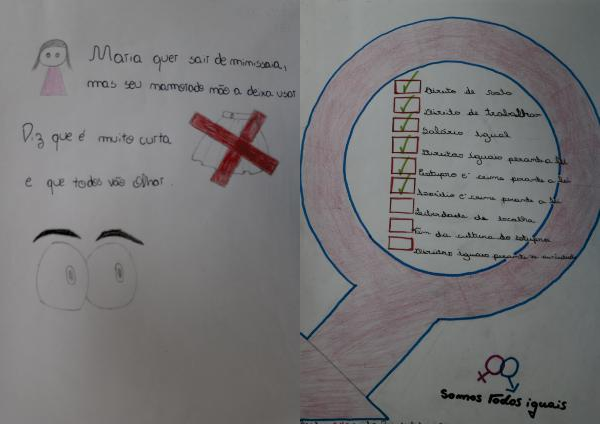 Maria quer sair de minissaia,
mas seu namorado não a deixa usar
Diz que é muito curta
e que todos vão olhar.
Direito de voto
Direito de trabalhar
Salário igual
Direitos iguais perante a lei
Estupro é crime perante a lei
Assédio é crime perante a lei
Liberdade de escolha
Fim da cultura do estupro
Direitos iguais perante a sociedade
Somos Todos iguais